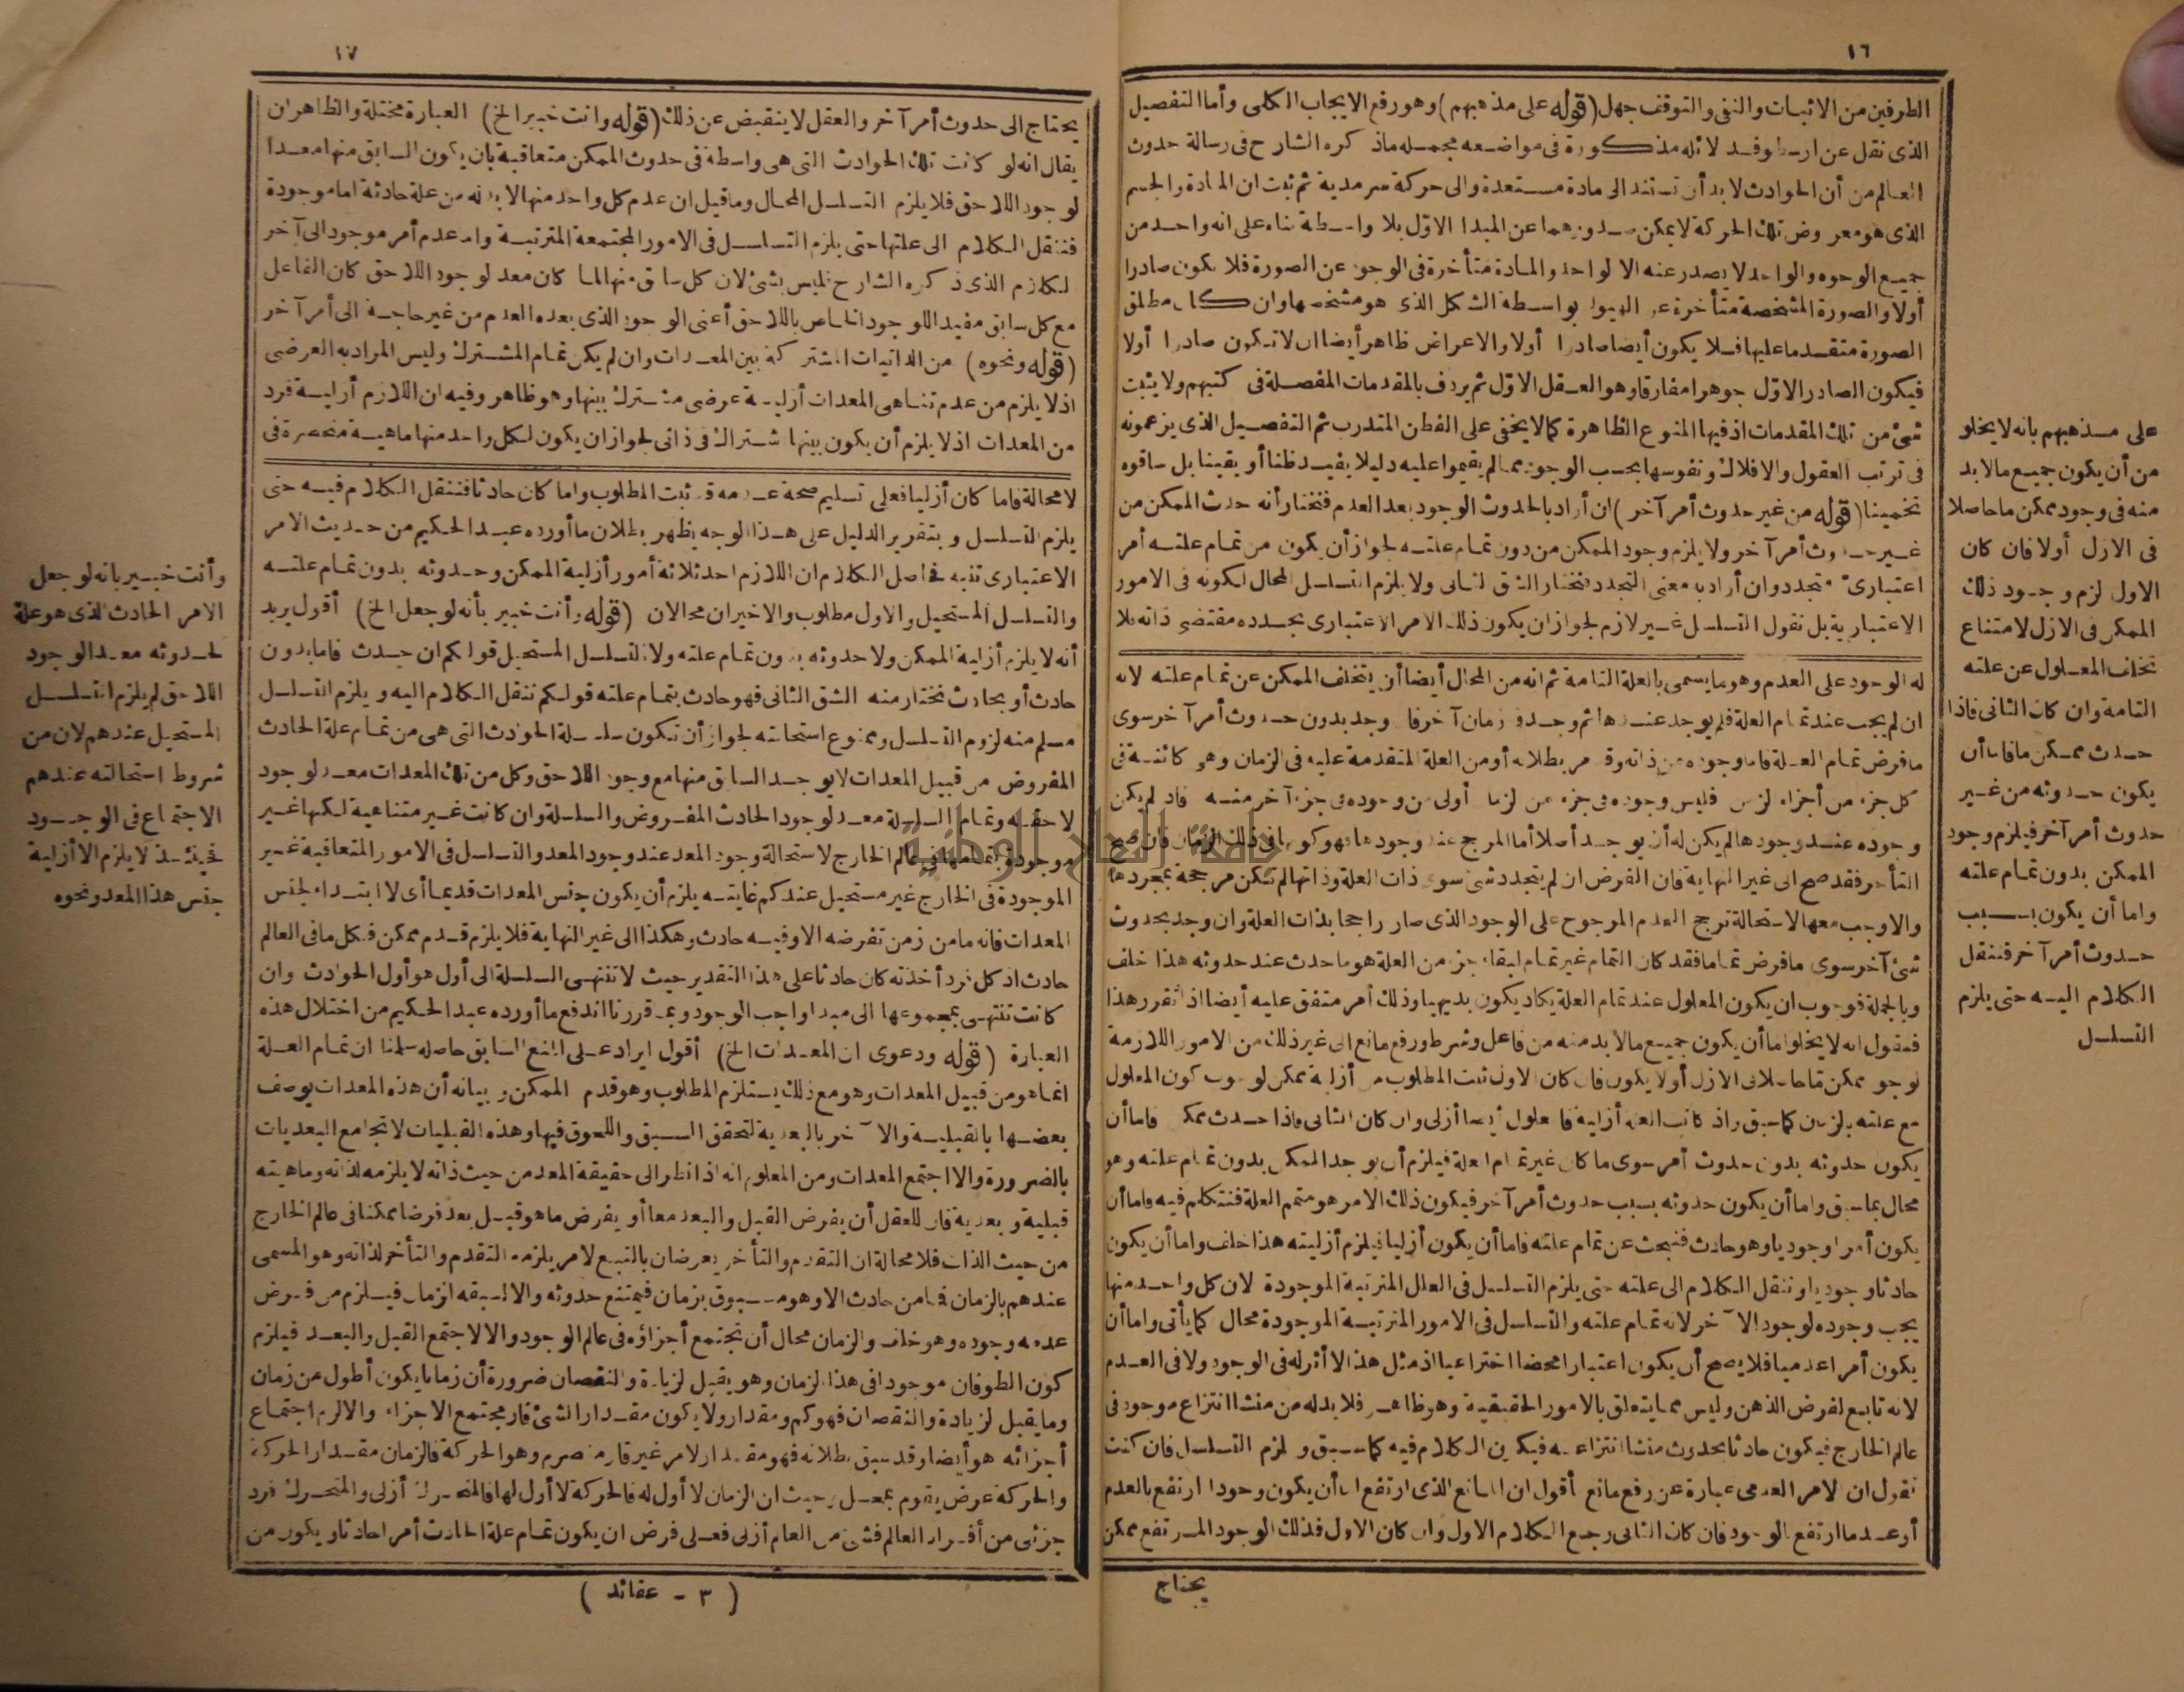 ١٦
الطرفين من الاثبات والنفى والتوقف جهل (قوله على مذهبهم) وهو رفع الايجاب الكلى وأما التفصيل
الذى نقل عن ارسطو فـدلائله مذكورة فى مواضعه مجمله ماذكره الشارح فى رسالة حدوث
العالم من أن الحوادث لابد أن تستند الى مادة مستعدة والى حركة سرمدية ثم ثبت ان المادة والجسم
الذى هو معروض تلك الحركة لايمكن صدورهما عن المبدا الاوّل بلا واسطة بناء على انه واحد من
جميع الوجوه والواحد لا يصدر عنه الا لواحد والمادة متأخرة فى الوجود عن الصورة فلا يكون صادرا
أولا والصورة المشخصة متأخرة عن الهيولى بواسطة الشكل الذى هو مشخصها وان كان مطلق
الصورة متقدما عليها فلا يكون أيضا صادرا أولا والاعراض ظاهر أيضا ان لا تكون صادرا أولا
فيكون الصادر الاوّل جوهرا مفارقا وهو العقل الاوّل ثم يردف بالمقدمات المفصلة فى كتبهم ولا يثبت
شئ من تلك المقدمات اذ فيها المنوع الظاهرة كما لا يخفى على الفطن المتدرب ثم التفصيل الذى يزعمونه
فى ترتب العقول والافلاك ونفوسها بحسب الوجود مما لم يقيموا عليه دليلا يفيد ظنا أو يقينا بل ساقوه
تخمينا (قوله من غير حدوث أمر آخر) ان أراد بالحدوث الوجود بعد العدم فنختار أنه حدث الممكن من
غير حدوث أمر آخر ولا يلزم وجود الممكن من دون تمام علته لجواز أن يكون من تمام علته أمر
اعتبارىّ متجدد وان أراد به معنى التجدد فنختار الشق الثانى ولا يلزم التسلسل المحال لكونه فى الامور
الاعتبارية بل نقول التسلسل غير لازم لجواز ان يكون ذلك الامر الاعتبارى تجدده مقتضى ذاته بلا
له الوجود على العدم وهو ما يسمى بالعلة التامة ثم انه من المحال أيضا أن يتخلف الممكن عن تمام علته لانه
ان لم يجب عند تمام العلة فلم يوجد عندها ثم وجد فى زمان آخر فاما وجد بدون حدوث أمر آخر سوى
ما فرض تمام العلة فاما وجوده من ذاته وقد مر بطلانه أو من العلة المتقدمة عليه فى الزمان وهى كائنة فى
كل جزء من أجزاء الزمن فليس وجوده فى جزء من الزمان أولى من وجوده فى جزء آخر منه فاذ لم يكن
وجوده عند وجودها لم يكن له أن يوجد أصلا أما المرجح عند وجودها فهو كونها فى ذلك الزمان فان صح
التأخر فقد صح الى غير النهاية فان الفرض ان لم يتجدد شئ سوى ذات العلة وذاتها لم تكن مرجحة بمجردها
والا وجب معها لاستحالة ترجح العدم المرجوح على الوجود الذى صار راجحا بذات العلة وان وجد بحدوث
شئ آخر سوى ما فرض تماما فقد كان التمام غير تمام لبقاء جزء من العلة هو ما حدث عند حدوثه هذا خلف
وبالجملة فوجوب ان يكون المعلول عند تمام العلة يكاد يكون بديهيا وذلك أمر متفق عليه أيضا اذا تقرر هذا
فنقول انه لا يخلو اما أن يكون جميع مالابد منه من فاعل وشرط ورفع مانع الى غير ذلك من الامور اللازمة
لوجود ممكن ما حاصلا فى الازل أولا يكون فان كان الاول ثبت المطلوب من أزلية ممكن لوجوب كون المعلول
مع علته بالزمن كما سبق واذ كانت العلة أزلية فالمعلول أيضا أزلى وان كان الثانى فاذا حدث ممكن فاما أن
يكون حدوثه بدون حدوث أمر سوى ما كان غير تمام العلة فيلزم أن يوجد الممكن بدون تمام علته وهو
محال بما سبق واما أن يكون حدوثه بسبب حدوث أمر آخر فيكون ذلك الامر هو متمم العلة فنتكلم فيه فاما أن
يكون أمرا وجوديا وهو حادث فنبحث عن تمام علته فاما أن يكون أزليا فيلزم أزليته هذا خلف واما أن يكون
حادثا وجوديا وننقل الكلام الى علته حتى يلزم التسلسل فى العلل المترتبة الموجودة لان كل واحد منها
يجب وجوده لوجود الآخر لانه تمام علته والتسلسل فى الامور المترتبة الموجودة محال كما يأتى واما أن
يكون أمرا عدميا فلا يصح أن يكون اعتبارا محضا اختراعيا اذ مثل هذا لا أثر له فى الوجود ولا فى العدم
لانه تابع لفرض الذهن وليس مما يتعلق بالامور الحقيقية وهو ظاهر فلا بد له من منشا انتزاع موجود فى
عالم الخارج فيكون حادثا بحدوث منشا انتزاعه فيكون الكلام فيه كما سبق ولزم التسلسل فان كنت
تقول ان الامر العدمى عبارة عن رفع مانع أقول ان المانع الذى ارتفع اما أن يكون وجودا ارتفع بالعدم
أو عدما ارتفع بالوجود فان كان الثانى رجع الكلام الاول وان كان الاول فذلك الوجود المرتفع ممكن
يحتاج
على مذهبهم بانه لا يخلو
من أن يكون جميع مالابد
منه فى وجود ممكن ما حاصلا
فى الازل أولا فان كان
الاول لزم وجود ذلك
الممكن فى الازل لامتناع
تخلف المعلول عن علته
التامة وان كان الثانى فاذا
حدث ممكن ما فاما أن
يكون حدوثه من غير
حدوث أمر آخر فيلزم وجود
الممكن بدون تمام علته
واما أن يكون بسبب
حدوث أمر آخر فننقل
الكلام اليه حتى يلزم
التسلسل
١٧
يحتاج الى حدوث أمر آخر والعقل لا ينقبض عن ذلك (قوله وانت خبير الخ) العبارة مختلة والظاهر ان
يقال انه لو كانت تلك الحوادث التى هى واسطة فى حدوث الممكن متعاقبة بان يكون السابق منها معدا
لوجود اللاحق فلا يلزم التسلسل المحال وما قيل ان عدم كل واحد منها لابد له من علة حادثة اما موجودة
فننقل الكلام الى علتها حتى يلزم التسلسل فى الامور المجتمعة المترتبة واما عدم أمر موجود الى آخر
الكلام الذى ذكره الشارح فليس بشئ لان كل سابق منها لما كان معدا لوجود اللاحق كان الفاعل
مع كل سابق مفيدا للوجود الخاص باللاحق أعنى الوجود الذى بعده العدم من غير حاجة الى أمر آخر
(قوله ونحوه) من الذاتيات المشتركة بين المعدات وان لم يكن تمام المشترك وليس المراد به العرضى
اذ لا يلزم من عدم تناهى المعدات أزلية عرضى مشترك بينها وهو ظاهر وفيه ان اللازم أزلية فرد
من المعدات اذ لا يلزم أن يكون بينها اشتراك فى ذاتى لجواز ان يكون لكل واحد منها ماهية منحصرة فى
لا محالة فاما كان أزليا فعلى تسليم صحة عدمه قد ثبت المطلوب واما كان حادثا فننقل الكلام فيه حتى
يلزم التسلسل وبتقرير الدليل على هذا الوجه يظهر بطلان ما أورده عبد الحكيم من حديث الامر
الاعتبارى تنبه فحاصل الكلام ان اللازم احد ثلاثة أمور أزلية الممكن وحدوثه بدون تمام علته
والتسلسل المستحيل والاول مطلوب والاخيران محالان (قوله وأنت خبير بأنه لو جعل الخ) أقول يريد
أنه لا يلزم أزلية الممكن ولا حدوثه بدون تمام علته ولا التسلسل المستحيل قولكم ان حدث فاما بدون
حادث أو بحادث نختار منه الشق الثانى فهو حادث بتمام علته قولكم ننقل الكلام اليه ويلزم التسلسل
مسلم منه لزوم التسلسل وممنوع استحالته لجواز أن تكون سلسلة الحوادث التى هى من تمام علة الحادث
المفروض من قبيل المعدات لا يوجد السابق منها مع وجود اللاحق وكل من تلك المعدات معد لوجود
لاحقه وتمام السلسلة معد لوجود الحادث المفروض والسلسلة وان كانت غير متناهية لكنها غير
موجودة بتمامها فى عالم الخارج لاستحالة وجود المعد عند وجود المعد والتسلسل فى الامور المتعاقبة غير
الموجودة فى الخارج غير مستحيل عندكم غايته يلزم أن يكون جنس المعدات قديما أى لا ابتداء لجنس
المعدات فانه ما من زمن تفرضه الا وفيه حادث وهكذا الى غير النهاية فلا يلزم قدم ممكن فكل ما فى العالم
حادث اذ كل فرد أخذته كان حادثا على هذا التقدير حيث لا تنتهى السلسلة الى أول هو أول الحوادث وان
كانت تنتهى بمجموعها الى مبدا واجب الوجود وبما قررنا اندفع ما أورده عبد الحكيم من اختلال هذه
العبارة (قوله ودعوى ان المعدات الخ) أقول ايراد على المنع السابق حاصله سلمنا ان تمام العلة
انما هو من قبيل المعدات وهو مع ذلك يستلزم المطلوب وهو قدم الممكن وبيانه أن هذه المعدات يوصف
بعضها بالقبلية والآخر بالبعدية لتحقق السبق واللحوق فيها وهذه القبليات لا تجامع البعديات
بالضرورة والا اجتمع المعدات ومن المعلوم انه اذا نظر الى حقيقة المعد من حيث ذاته لا يلزمه لذاته وماهيته
قبلية وبعدية فان للعقل أن يفرض القبل والبعد معا أو يفرض ما هو قبل بعد فرضا ممكنا فى عالم الخارج
من حيث الذات فلا محالة ان التقدم والتأخر يعرضان بالتبع لامر يلزمه التقدم والتأخر لذاته وهو المسمى
عندهم بالزمان فما من حادث الا وهو مسبوق بزمان فيمتنع حدوثه والا لسبقه الزمان فيلزم من فرض
عدمه وجوده وهو خلف والزمان محال أن تجتمع أجزاؤه فى عالم الوجود والا لاجتمع القبل والبعد فيلزم
كون الطوفان موجودا فى هذا الزمان وهو يقبل الزيادة والنقصان ضرورة أن زمانا يكون أطول من زمان
وما يقبل الزيادة والنقصان فهو كم ومقدار ولا يكون مقدارا لشئ قار مجتمع الاجزاء والا لزم اجتماع
أجزائه هو أيضا وقد سبق بطلانه فهو مقدار لامر غير قار منصرم وهو الحركة فالزمان مقدار الحركة
والحركة عرض يقوم بمحل وحيث ان الزمان لا أول له فالحركة لا أول لها فالمتحرك أزلى والمتحرك فرد
جزئى من أفراد العالم فشئ من العالم أزلى فعلى فرض ان يكون تمام علة الحادث أمرا حادثا ويكون من
وأنت خبير بانه لو جعل
الامر الحادث الذى هو علة
لحدوثه معد الوجود
اللاحق لم يلزم التسلسل
المستحيل عندهم لان من
شروط استحالته عندهم
الاجتماع فى الوجود
فحينئذ لا يلزم الا أزلية
جنس هذا المعد ونحوه
(٣ - عقائد)
جامعة النجاح الوطنية